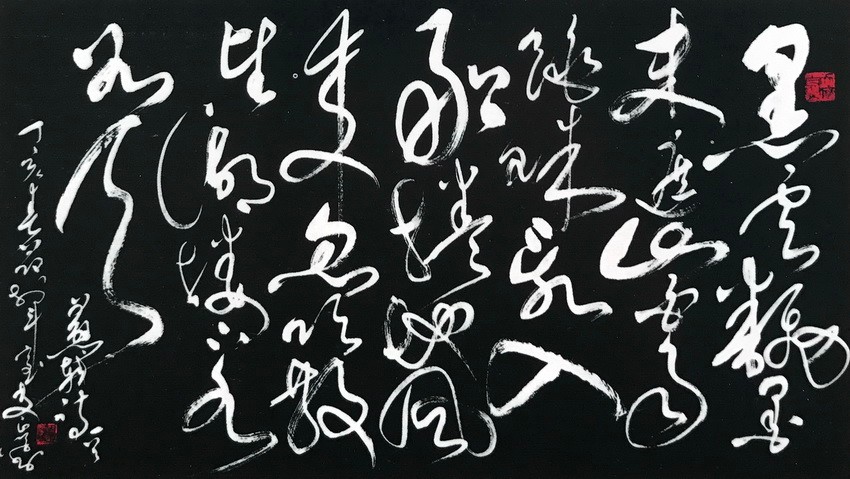 黑云翻墨
未遮山白雨
跳珠乱入
船捲地风
来忽吹散
望湖楼下水
如天
苏轼诗
丁亥春